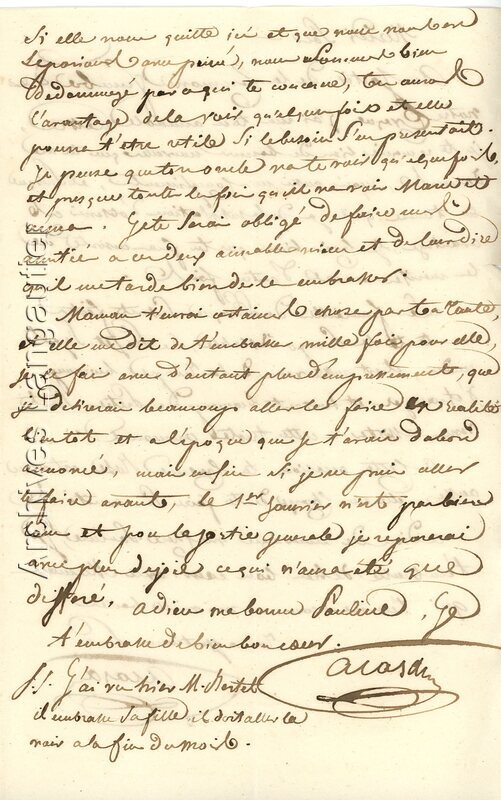 Si elle nous quitte ici et que nous nous en
Séparions avec peine, nous Sommes bien
Dedommagé par ce qui te concerne, tu auras
L'avantage de la voir quelque fois et elle
pourra t'etre utile Si le besoin S'en presentait.
Je pense que ton oncle va te voir quelque fois
et presque toute les fois qu'il va voir Marie et
amitié a ces deux aimable nieces et de leur dire
qu'il me tarde bien de les embrasser.
Maman t'envoi certaines choses par ta tante,
et elle me dit de t'embrasser mille fois pour elle,
je le fais avec d'autant plus d'empressement, que
je desirerais beaucoup aller le faire en realité
bientot et a l'époque que je t'avais d'abord
annoncé, mais enfin si je ne puis aller
le faire avant, le 1er Janvier n'est pas bien
loin et pour la Sortie generale je reporterai
avec plus de joie ce qui n'aura été que
differé, adieu ma bonne Pauline, Je
t'embrasse de bien bon coeur.
P.S. J'ai vu hier M.
il embrasse sa fille il doit aller la
voir a la fin du mois.
Archives Langartier